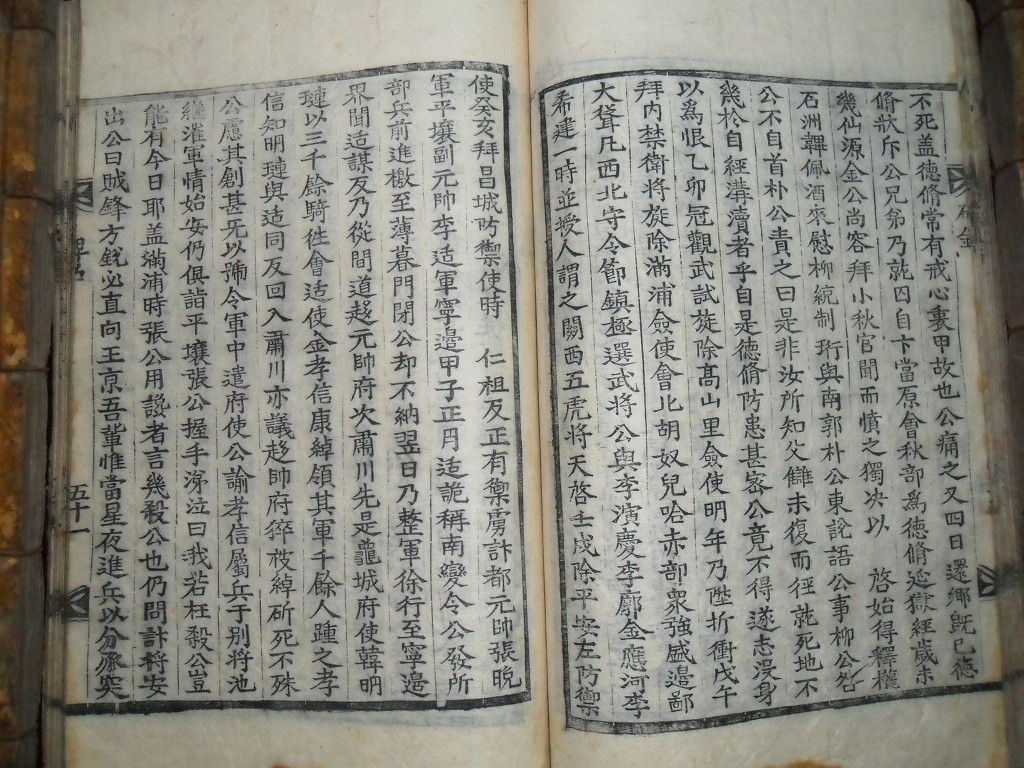 不死盖德脩常有戒心裏甲故也公痛之又四日還鄉旣已德
脩狀斥公兄弟乃就囚自卞當原會秋部爲德脩逭獄經歲未
幾仙源金公尚容拜小秋官聞而憤之獨决以 啓始得釋權
石洲韠佩酒來慰柳統制珩與南郭朴公東說語公事柳公咎
公不自首朴公責之曰是非汝所知父讎未復而徑就死地不
幾於自經溝瀆者乎自是德脩防患甚密公竟不得遂志沒身
以爲恨乙卯冠觀武試旋除高山里僉使明年乃陞折衝戊午
拜內禁衛將旋除滿浦僉使會北胡奴兒哈赤部衆強盛邊鄙
大聳凡西北守令節鎮極選武將公與李濱慶李廓金應河李
希建一時並授人謂之關西五虎將天啓壬戌除平安左防禦
使癸亥拜昌城防禦使時 仁祖反正有禦虜計都元帥張晩
軍平壤副元帥李适軍寧邊甲子正月适詭稱南變令公發所
部兵前進檄至薄暮門閉公却不納翌日乃整軍徐行至寧邊
界聞适謀反乃從間道趍元帥府次肅川先是龍城府使韓明
璉以三千餘騎徃會适使金孝信康綽領其軍千餘人踵之孝
信知明璉與适同反回入肅川亦議趍帥府猝杖綽斫死不殊
公慮其創甚牙以號令軍中遣府使公諭孝信屬兵于别將池
繼漼軍情始安仍俱詣平壤張公握手涕泣曰我若枉殺公豈
能有今日耶盖滿浦時張公用讒者言幾殺公也仍問計將安
出公曰賊鋒方銳必直向王京吾輩惟當星夜進兵以分豕突
五十一